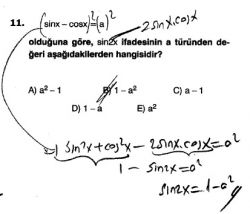 11. (sinx - cosx)²=(a)² 2sinx.cosx
olduğuna göre, sin2x ifadesinin a türünden de-
ğeri aşağıdakilerden hangisidir?
A) a² – 1 B) 1 – a² C) a – 1
D) 1 – a E) a²
sin²x+cos²x - 2sinx.cosx=a²
1 - sin2x=a²
sin2x=1-a²